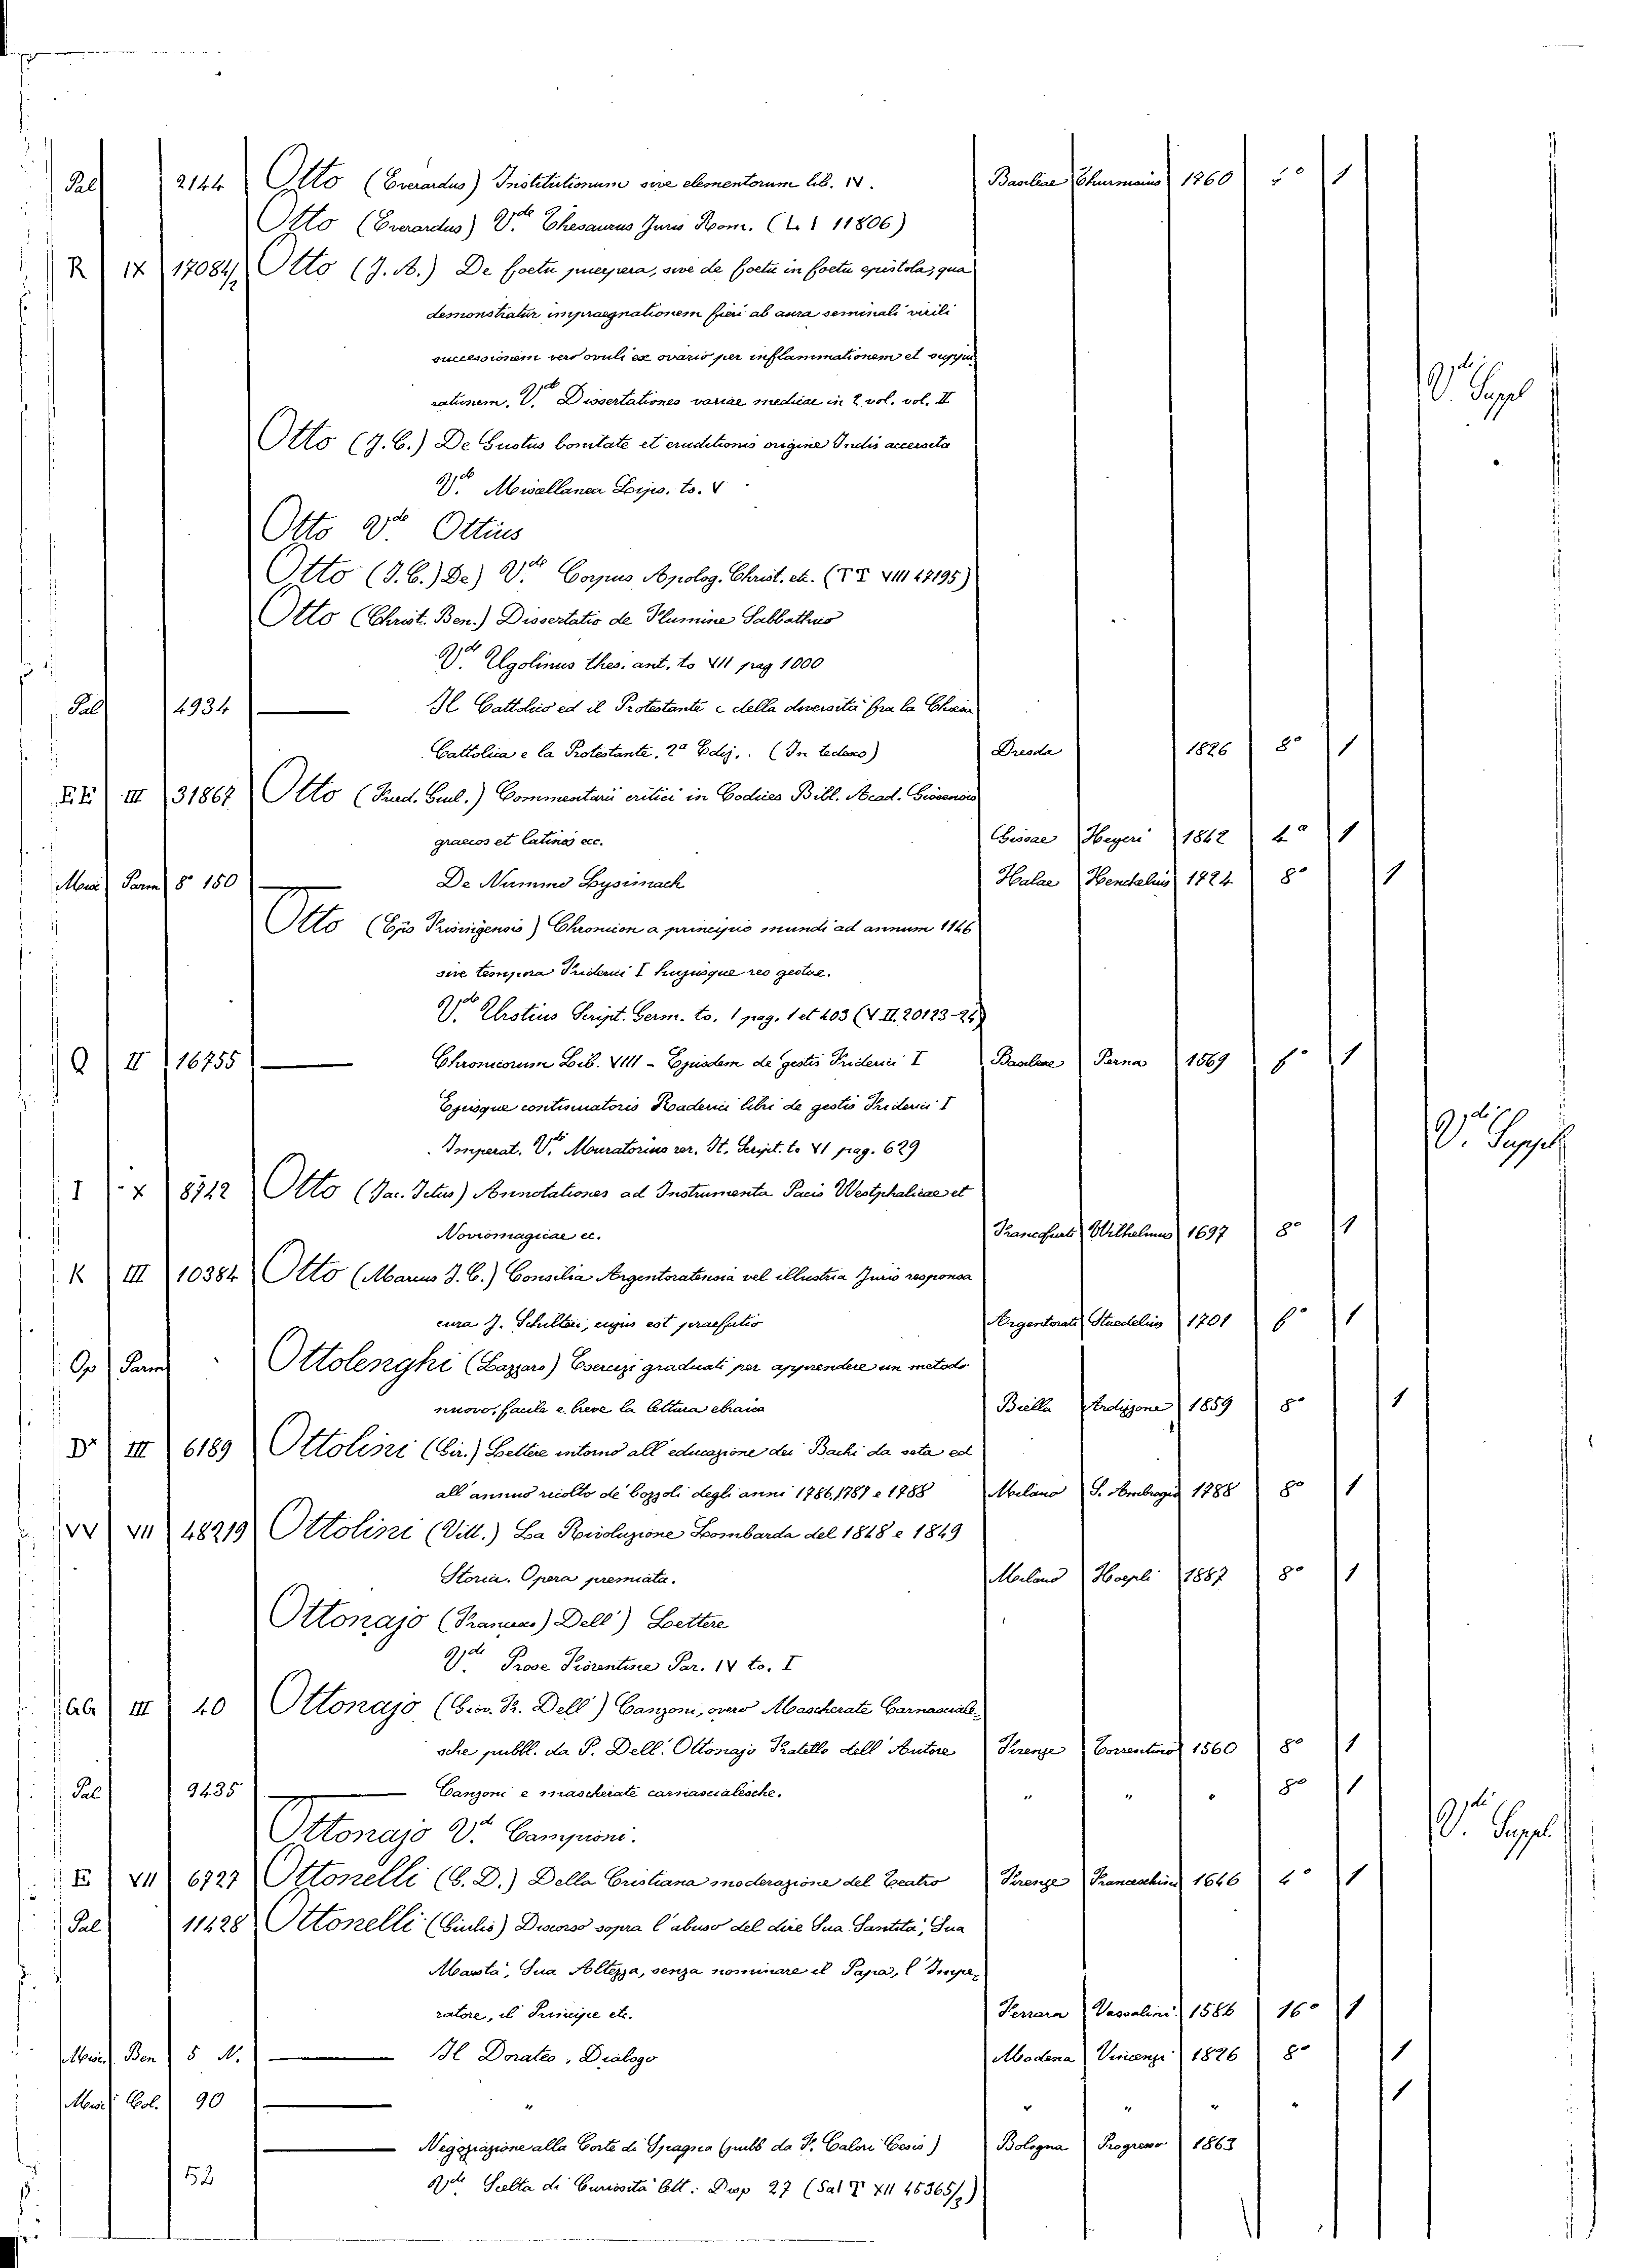 Pal 2144 Otto (Everardus) Institutionum sive elementorum lib. IV. Basileae Thurmsius 1760 1
Otto (Everardus) V.de Thesaurus Juris Rom. (L. I 11806)
R IX 17084/2 Otto (J. A.) De foetu puerpera, sive de foetu in foetu epistola, qua
demonstratur impraegnationem fieri ab aura seminali virili
successionem vero ovuli ex ovario per inflammationem et suppu
rationem. V.de Dissertationes variae medicae in 2 vol. vol. II V.di Suppl
Otto (J. C.) De Gustus bonitate et eruditionis origine Indis accersita
V.de Miscellanea Lips. to. V
Otto V.de Ottius
Otto (J. C.) De) V.de Corpus Apolog. Christ. etc. (TT VIII 47195)
Otto (Christ. Ben.) Dissertatio de Flumine Sabbathico
V.de Ugolinus thes. ant. to VII pag 1000
Pal 4934 — Il Cattolico ed il Protestante e della diversità fra la Chiesa
Cattolica e la Protestante, 2a Ediz. (In tedesco) Dresda 1826 8° 1
EE III 31867 Otto (Fred. Guil.) Commentarii critici in Codices Bibl. Acad. Gissensis
graecos et latinos ecc. Gissae Heyeri 1842 4° 1
Misc. Parm 8° 150 — De Nummo Lysimach Halae Hendelius 1724 8° 1
Otto (Epis Frisingensis) Chronicon a principio mundi ad annum 1146
sive tempora Friderici I hujusque res gestae.
V.de Urstius Script. Germ. to. 1 pag. 1 et 403 (V. II. 20123-24)
Q II 16755 — Chronicorum Lib. VIII - Ejusdem de gestis Friderici I Basileae Perna 1569 f° 1
Ejusque continuatoris Raderici libri de gestis Friderici I
Imperat. V.de Muratorius rer. It. Script. to VI pag. 629 V.di Suppl
I X 8712 Otto (Jac. Ictus) Annotationes ad Instrumenta Pacis Westphalicae et
Noviomagicae ec. Francofurti Wilhelmus 1697 8° 1
K III 10384 Otto (Marcus J. C.) Consilia Argentoratensia vel illustria Juris responsa
cura J. Schilteri, cujus est praefatio Argentorati Staedelius 1701 f° 1
Op Parm Ottolenghi (Lazzaro) Esercizi graduati per apprendere un metodo
nuovo, facile e breve la lettura ebraica Biella Ardizzone 1859 8° 1
D' III 6189 Ottolini (Gir.) Lettere intorno all'educazione dei Bachi da seta ed
all'annuo ricolto de' bozzoli degli anni 1786, 1787 e 1788 Milano S. Ambrogio 1788 8° 1
VV VII 48219 Ottolini (Vitt.) La Rivoluzione Lombarda del 1848 e 1849
Storia. Opera premiata. Milano Hoepli 1887 8° 1
Ottonajo (Francesco) Dell') Lettere
V.de Prose Fiorentine Par. IV to. I
III 40 Ottonajo (Giov. B. Dell') Canzoni, overo Mascherate Carnasciale-
sche publl. da P. Dell'Ottonajo Fratello dell'Autore Firenze Torrentino 1560 8° 1
Pal 9435 — Canzoni e mascherate carnascialesche. " " " 8° 1
Ottonajo V.di Campioni. V.di Suppl.
E VII 6727 Ottonelli (G. D.) Della Cristiana moderazione del Teatro Firenze Franceschini 1646 4° 1
Pal 11428 Ottonelli (Giulio) Discorso sopra l'abuso del dire Sua Santità, Sua
Maestà, Sua Altezza, senza nominare il Papa, l'Impe-
ratore, il Principe etc. Ferrara Vassalini 1586 16° 1
Misc. Ben 5 N. — Il Dorateo, Dialogo Modena Vincenzi 1826 8° 1
Misc. Col. 90 — " " " " " 1
— Negoziazione alla Corte di Spagna (publ da P. Calori Cesis) Bologna Progresso 1863
52 V.de Scelta di Curiosità lett: Disp 27 (Sal T XII 45365/2)